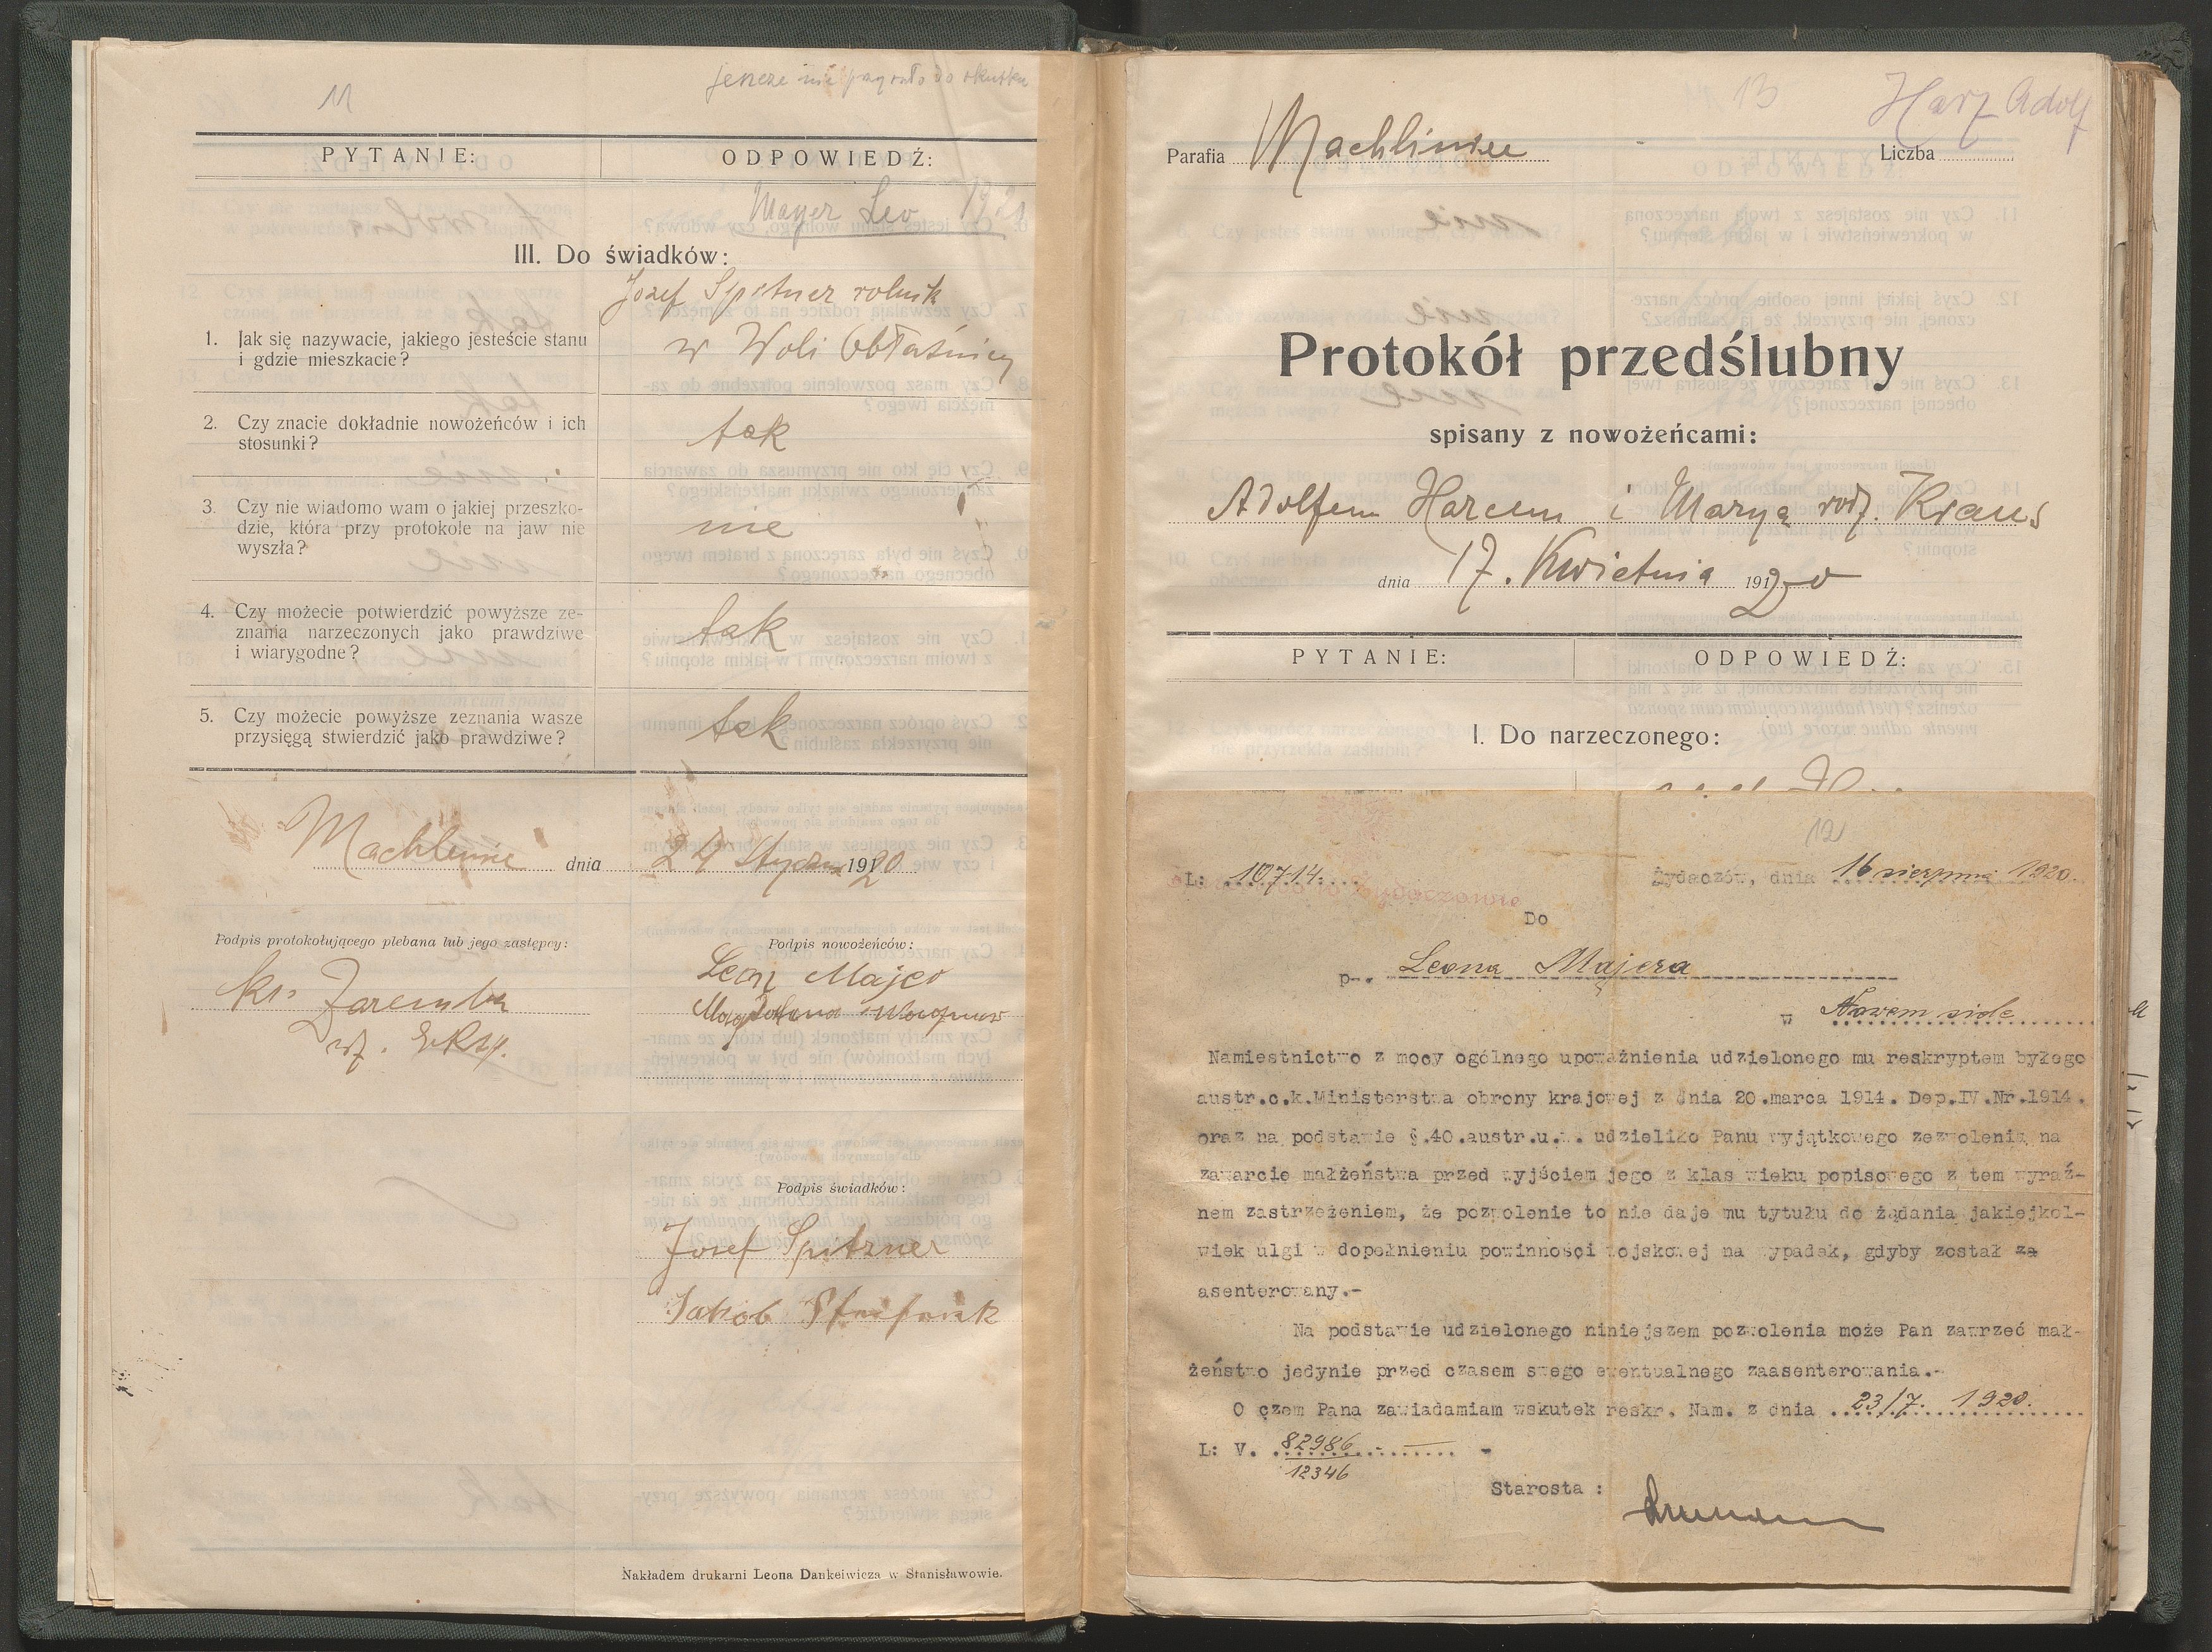 11
PYTANIE: ODPOWIEDŹ:
Mayer Leo
III. Do świadków:
Jozef Spitzner rolnik
w Woli Obłaźnicy
1. Jak się nazywacie, jakiego jesteście stanu
i gdzie mieszkacie?
2. Czy znacie dokładnie nowożeńców i ich
stosunki?
tak
3. Czy nie wiadomo wam o jakiej przeszko-
dzie, która przy protokole na jaw nie
wyszła?
nie
4. Czy możecie potwierdzić powyższe ze-
znania narzeczonych jako prawdziwe
i wiarygodne?
tak
5. Czy możecie powyższe zeznania wasze
przysięgą stwierdzić jako prawdziwe?
tak
dnia 1920
Podpis protokołującego plebana lub jego zastępcy:
ks. Zaremba
Podpis nowożeńców:
Leon
Podpis świadków:
Josef Spitzner
Jakob
Nakładem drukarni Leona Dankeiwicza w Stanisławowie.
13
Harz Adolf
Parafia Machliniec Liczba
Protokół przedślubny
spisany z nowożeńcami:
Adolfem Harcem i Maryą rodz. Kraus
dnia 17. Kwietnia 1920
PYTANIE: ODPOWIEDŹ:
I. Do narzeczonego:
12
L: 10714. Żydaczów, dnia 16 sierpnia 1920.
Do
p. Leona Majera
w Nowem siole
Namiestnictwo z mocy ogólnego upoważnienia udzielonego mu reskryptem byłego
austr.c.k.Ministerstwa obrony krajowej z dnia 20.marca 1914. Dep.IV.Nr.1914.
oraz na podstawie §.40.austr.u.w. udzieliło Panu wyjątkowego zezwolenia na
zawarcie małżeństwa przed wyjściem jego z klas wieku popisowego z tem wyraź-
nem zastrzeżeniem, że pozwolenie to nie daje mu tytułu do żądania jakiejkol-
wiek ulgi w dopełnieniu powinności wojskowej na wypadek, gdyby został za
asenterowany.-
Na podstawie udzielonego niniejszem pozwolenia może Pan zawrzeć mał-
żeństwo jedynie przed czasem swego ewentualnego zaasenterowania.-
O czem Pana zawiadamiam wskutek reskr. Nam. z dnia 23/7. 1920.
L: V. 82986 -
12346
Starosta :